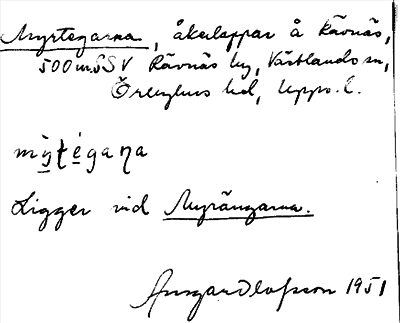 Myrtegarna, åkerlappar å Rävnäs,
500 m SSV Rävnäs by, Västlands sn,
Örbyhus hd, Upps. l.
mỳtégaɳa
Ligger vid Myrängarna.
Ansgar Olofsson 1951